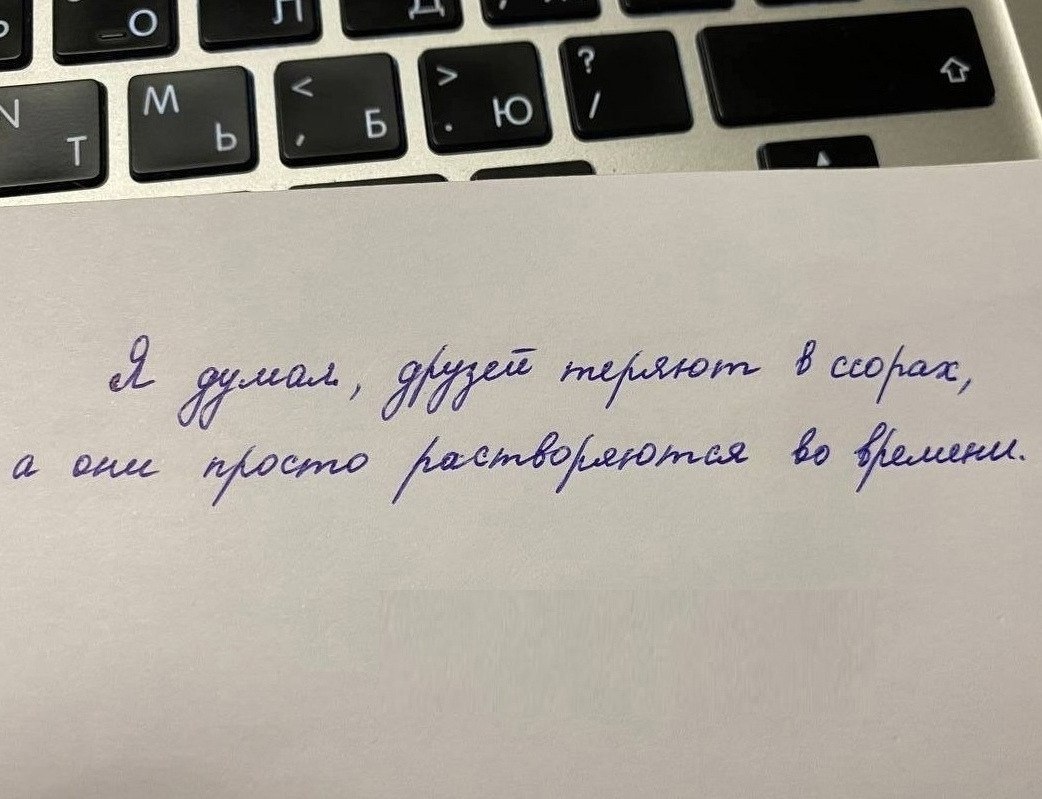 _ О Л Д
N Т М Ь < , Б > . Ю ? /
Я думал, друзей теряют в ссорах,
а они просто растворяются во времени.